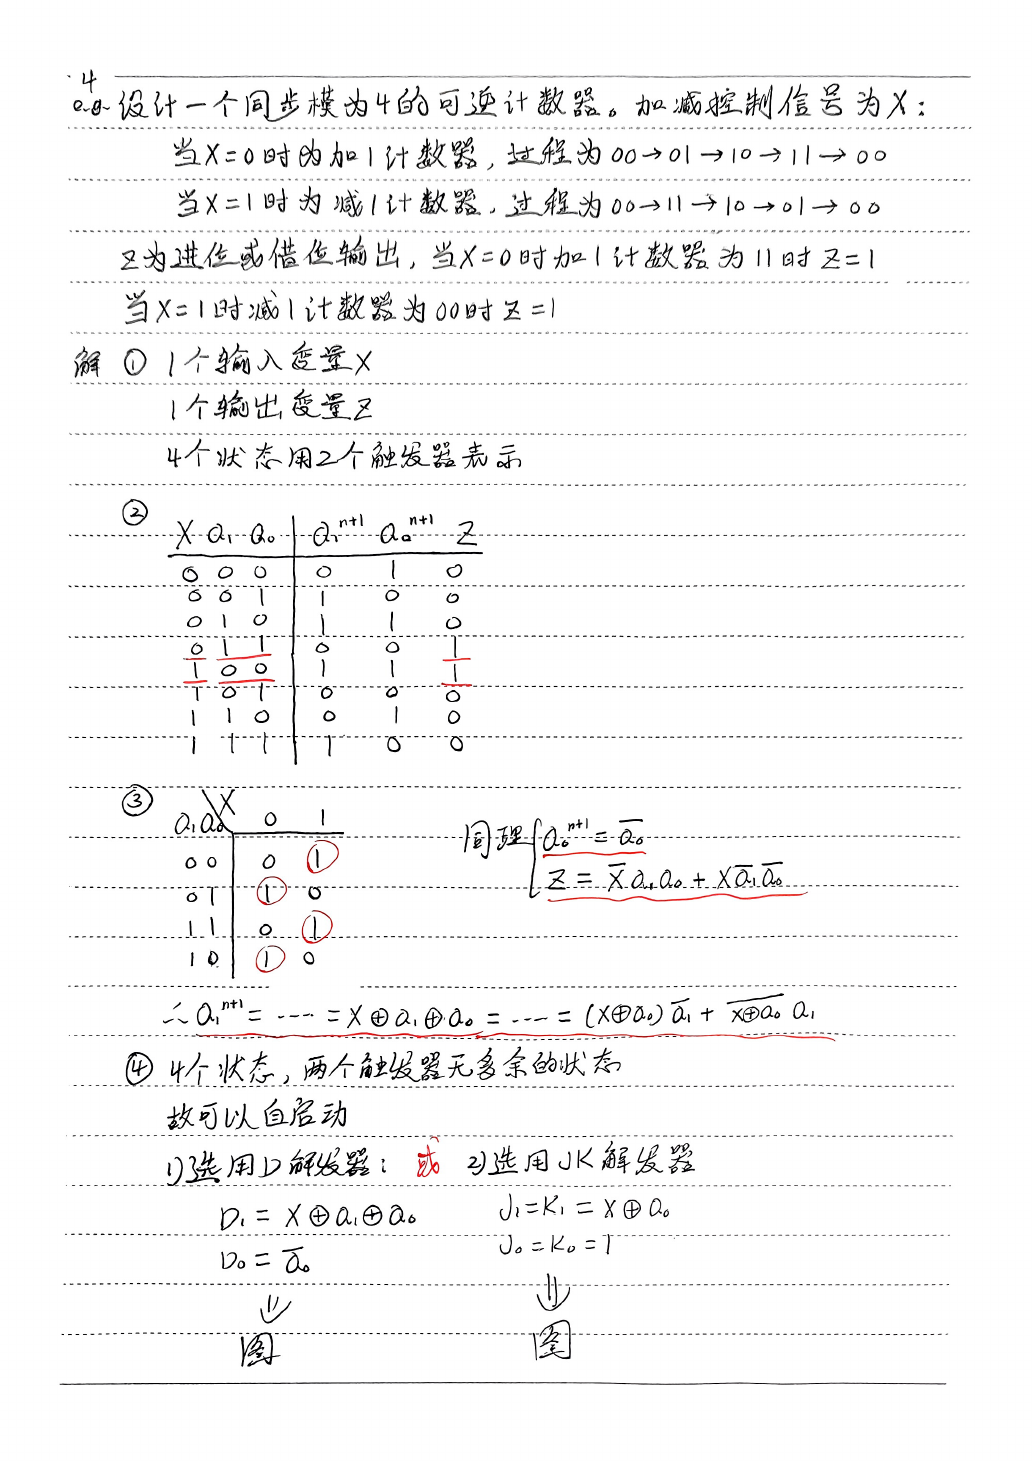 4
e.g. 设计一个同步模为4的可逆计数器。加减控制信号为X:
当X=0时为加1计数器, 过程为 00→01→10→11→00
当X=1时为减1计数器, 过程为 00→11→10→01→00
Z为进位或借位输出, 当X=0时加1计数器为11时Z=1
当X=1时减1计数器为00时Z=1
解 ① 1个输入变量X
1个输出变量Z
4个状态用2个触发器表示
②
X Q₁ Q₀ | Q₁ⁿ⁺¹ Q₀ⁿ⁺¹ Z
0 0 0 | 0 1 0
0 0 1 | 1 0 0
0 1 0 | 1 1 0
0 1 1 | 0 0 1
1 0 0 | 1 1 1
1 0 1 | 0 0 0
1 1 0 | 0 1 0
1 1 1 | 1 0 0
③
Q₁Q₀\X 0 1
00 | 0 1
01 | 1 0
11 | 0 1
10 | 1 0
同理 { Q₀ⁿ⁺¹ = Q̅₀
Z = X̅Q₁Q₀ + XQ̅₁Q̅₀
∴ Q₁ⁿ⁺¹ = ---- = X⊕Q₁⊕Q₀ = ---- = (X⊕Q₀)Q̅₁ + \overline{X⊕Q₀} Q₁
④ 4个状态, 两个触发器无多余的状态
故可以自启动
1)选用D解发器: 或 2)选用JK解发器
D₁ = X⊕Q₁⊕Q₀ J₁=K₁ = X⊕Q₀
D₀ = Q̅₀ J₀=K₀=1
⇓ ⇓
图 图